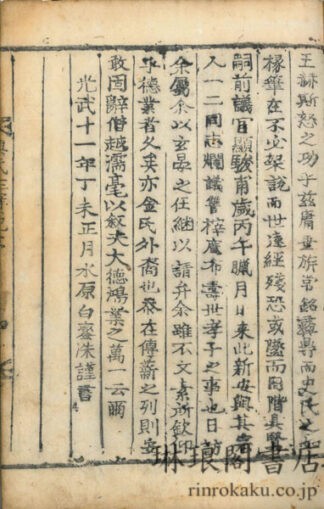 王赫斯怒之功乎玆庸圭旂常銘彛鼎而史氏之
椽筆在不必架說而世遠經殘恐或墜而罔階具賢
嗣前議官顯駿甫歲丙午臘月日來此新安與其宗
人一二同志爛議鋟梓廣布壽世孝子之事也日訪
余屬余以玄晏之任继以請弁余雖不文素所欽仰
乎德業者久矣亦金氏外裔也忝在傳薪之列則安
敢固辭僭越濡毫以叙夫大德鴻業之萬一云爾
光武十一年丁未正月水原白 洙謹書
琳琅閣書店
rinrokaku.co.jp